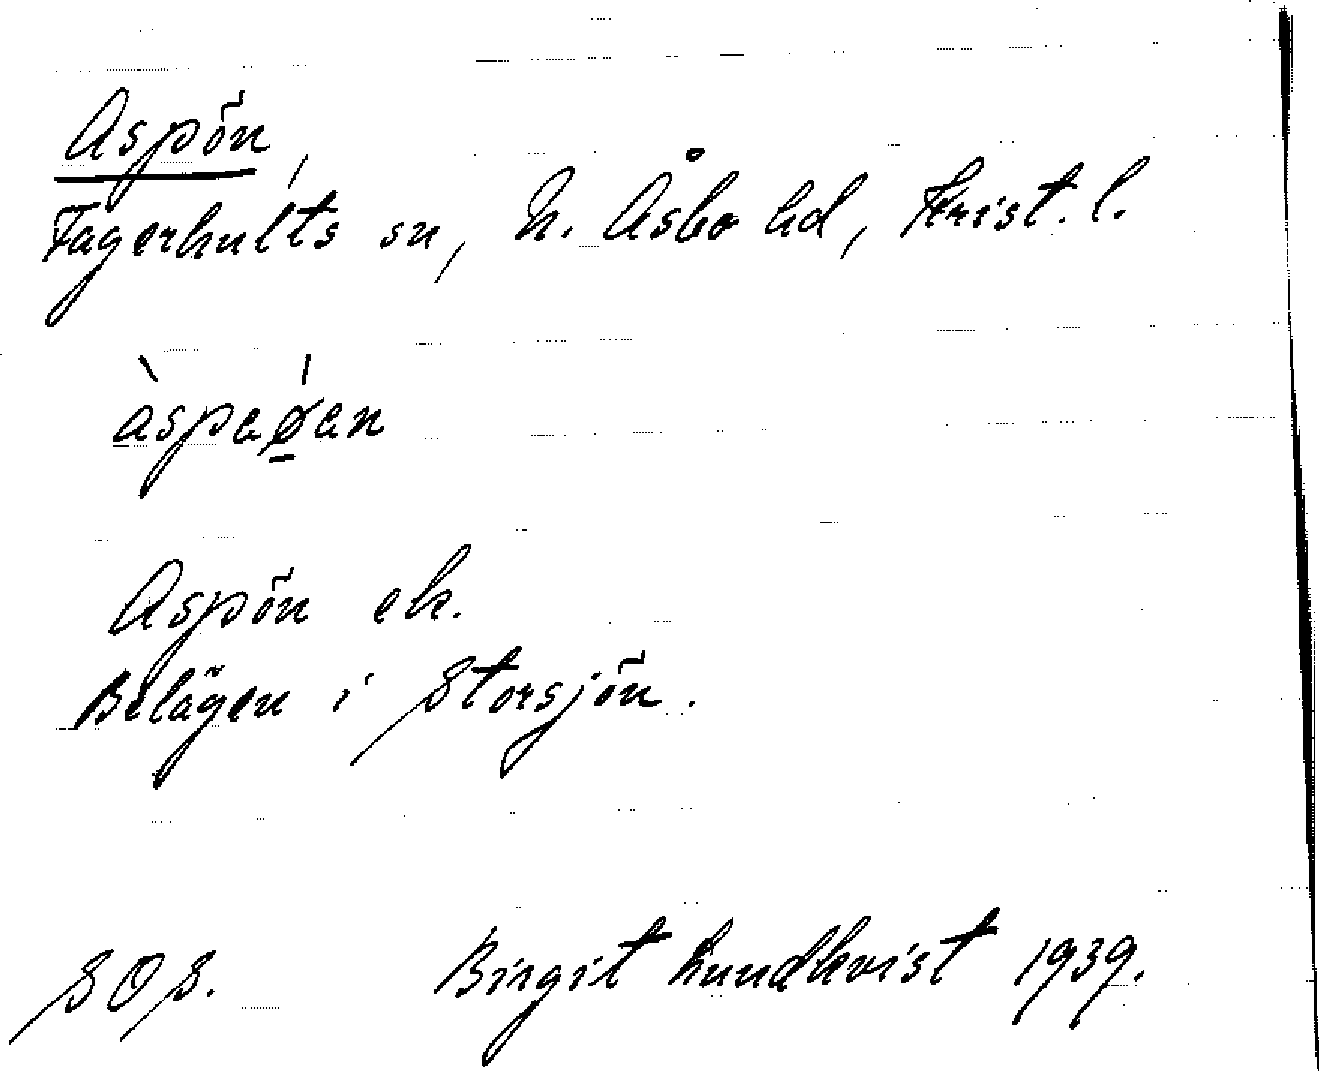 Aspön
Fagerhults sn, N. Åsbo hd, Krist. l.
àspaǿ̱an
Aspön ek.
Belägen i Storsjön.
SOS. Birgit Lundkvist 1939.